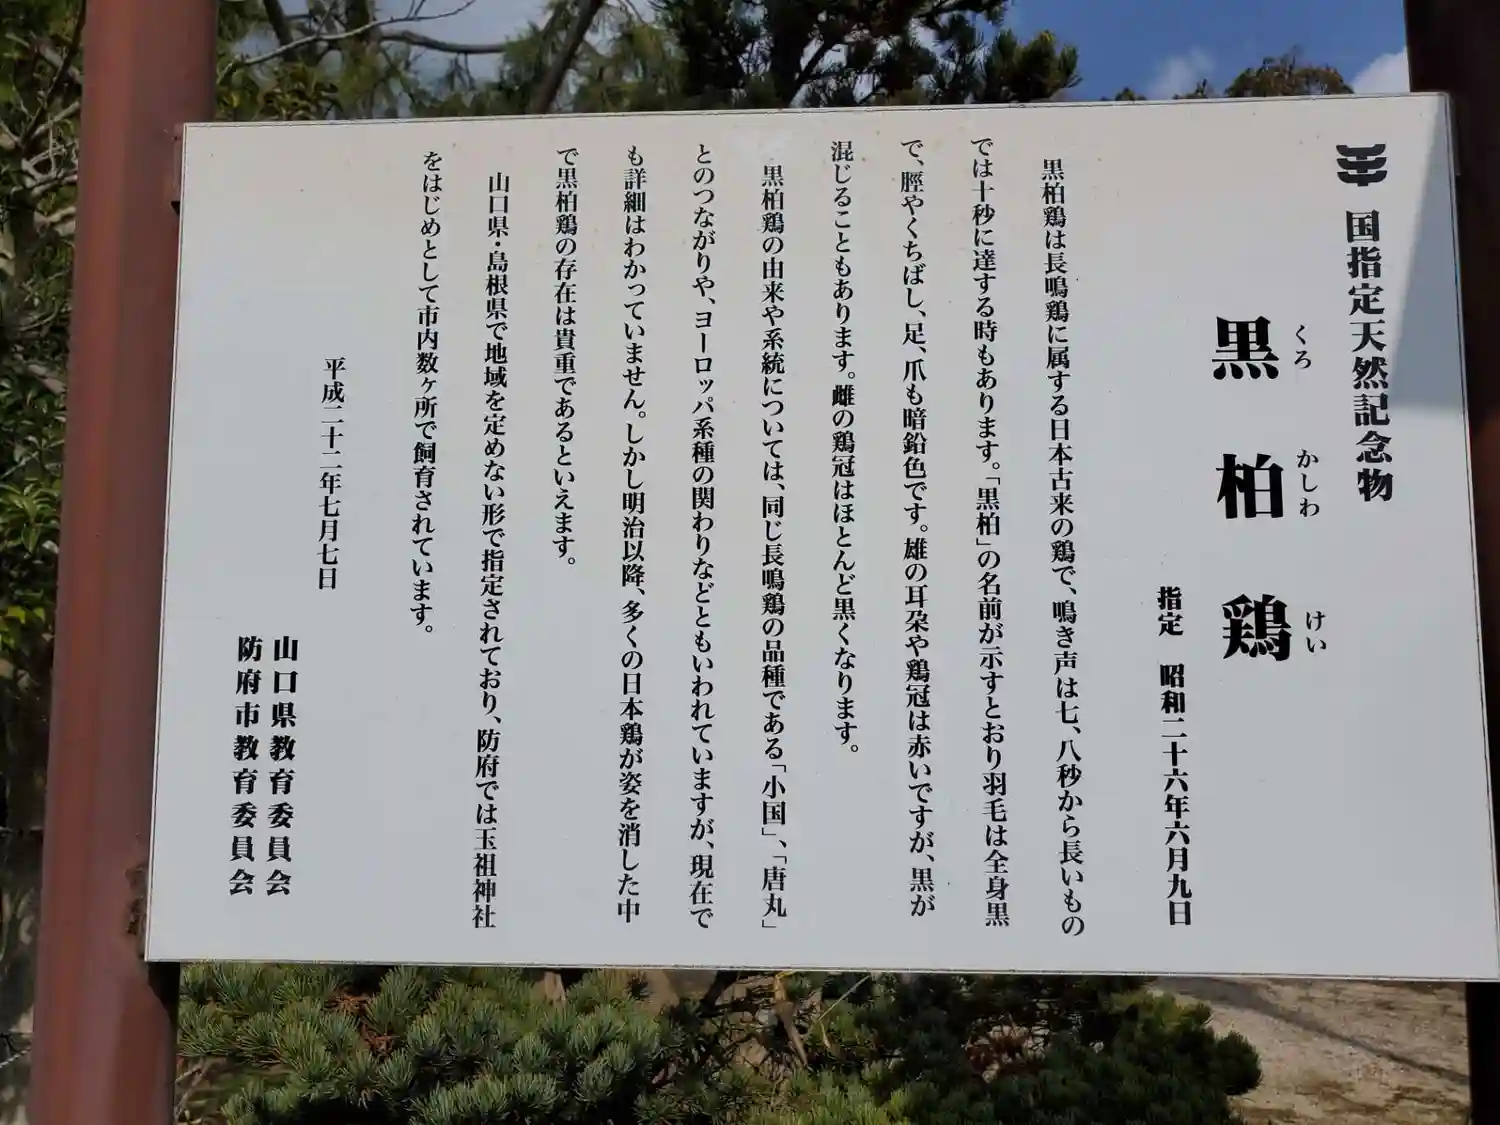 国指定天然記念物
くろ かしわ けい
黒柏鶏
指定 昭和二十六年六月九日
黒柏鶏は長鳴鶏に属する日本古来の鶏で、鳴き声は七、八秒から長いもの
では十秒に達する時もあります。「黒柏」の名前が示すとおり羽毛は全身黒
で、脛やくちばし、足、爪も暗鉛色です。雄の耳朶や鶏冠は赤いですが、黒が
混じることもあります。雌の鶏冠はほとんど黒くなります。
黒柏鶏の由来や系統については、同じ長鳴鶏の品種である「小国」、「唐丸」
とのつながりや、ヨーロッパ系種の関わりなどともいわれていますが、現在で
も詳細はわかっていません。しかし明治以降、多くの日本鶏が姿を消した中
で黒柏鶏の存在は貴重であるといえます。
山口県・島根県で地域を定めない形で指定されており、防府では玉祖神社
をはじめとして市内数ヶ所で飼育されています。
平成二十二年七月七日
山口県教育委員会
防府市教育委員会